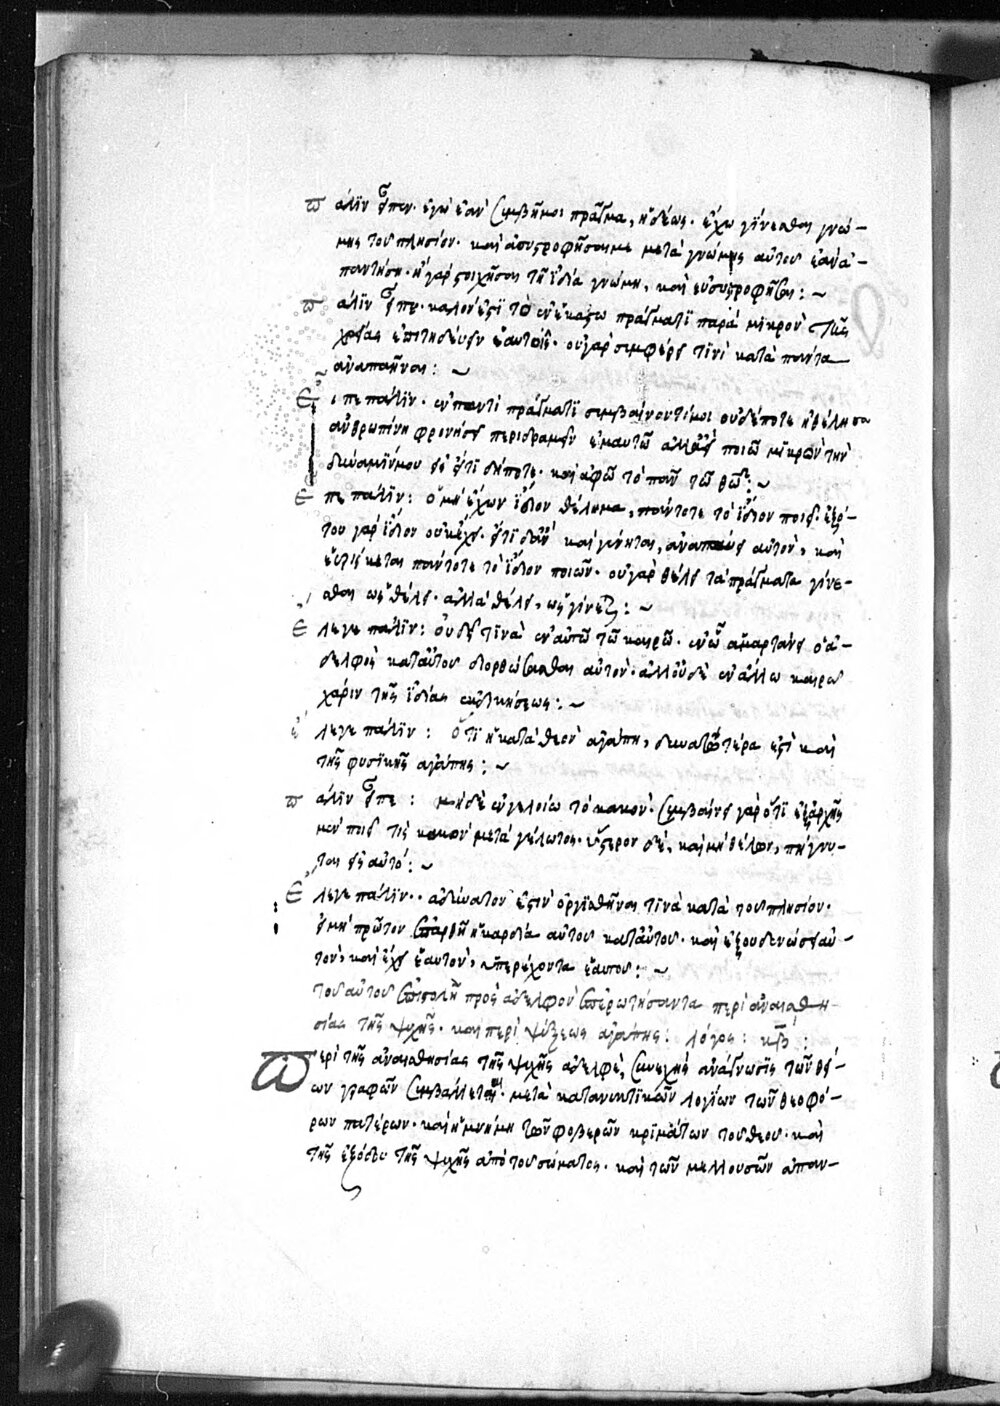 πάλιν εἶπεν· ἐγὼ ἐὰν συμβῇ μοι πρᾶγμα, ἡδέως ἔχω γίνεσθαι γνώ-
μης τοῦ πλησίον· καὶ ἀστροφῆσαί με μετὰ γνώμης αὐτοῦ ἐὰν ἀ-
παντήση· ἢ γὰρ στοιχῆσαι τῆ ἰδία γνώμη, καὶ εὐστροφῆσαι: ~
πάλιν εἶπε· καλόν ἐστι τὸ ἐν ἑκάστω πράγματι παρὰ μικρὸν τῆς
χρείας ἐπιτηδεύειν ἑαυτοῖς· οὐ γὰρ συμφέρει τινὶ κατὰ πάντα
ἀναπαῆναι: ~
εἶπε πάλιν· ἐν παντὶ πράγματι συμβαίνοντί μοι οὐδέποτε ἠθέλησα
ἀνθρωπίνη φρονήσει περιδραμεῖν ἐμαυτῶ ἀλλ' ποιῶ μικρὸν τὴν
δύναμίν μου εἰς ὅτι δήποτε· καὶ ἀφῶ τὸ πᾶν τῶ θεῶ: ~
εἶπε πάλιν: ὁ μὴ ἔχων ἴδιον θέλημα, πάντοτε τὸ ἴδιον ποιεῖ·
του γὰρ ἴδιον οὐκ ἔχει· ὅτι δ' ἂν καὶ γίνηται, ἀναπαύει αὐτόν, καὶ
εὑρίσκεται πάντοτε τὸ ἴδιον ποιῶν· οὐ γὰρ θέλει τὰ πράγματα γίνε-
σθαι ὡς θέλει· ἀλλὰ θέλει, ὡς γίνεται: ~
ἔλεγε πάλιν: οὐ δεῖ τινὰ ἐν αὐτῶ τῶ καιρῶ· ἐν ὧ ἁμαρτάνει ὁ ἀ-
δελφὸς κατ' αὐτοῦ διορθώσασθαι αὐτόν· ἀλλ' οὐδὲ ἐν ἄλλω καιρῶ
χάριν τῆς ἰδίας ἐκδικήσεως: ~
ἔλεγε πάλιν: ὅτι ἡ κατὰ θεὸν ἀγάπη, δυνατωτέρα ἐστὶ καὶ
τῆς φυσικῆς ἀγάπης: ~
πάλιν εἶπε: μηδὲ ἐν γελοίω τὸ κακόν· συμβαίνει γὰρ ὅτι ἐξ ἀρχῆς
μὲν ποιεῖ τις κακὸν μετὰ γέλωτος· ὕστερον δὲ, καὶ μὴ θέλων, πήγνυ-
ται εἰς αὐτό: ~
ἔλεγε πάλιν· ἀδύνατόν ἐστιν ὀργισθῆναι τινὰ κατὰ τοῦ πλησίον·
εἰ μὴ πρῶτον ἐπαρθῆ ἡ καρδία αὐτοῦ κατ' αὐτοῦ· καὶ ἐξουδενώσει αὐ-
τόν, καὶ ἔχει ἑαυτόν, ὑπερέχοντα ἑαυτοῦ: ~
τοῦ αὐτοῦ ἐπιστολὴ πρὸς ἀδελφὸν ἐπερωτήσαντα περὶ ἀναισθη-
σίας τῆς ψυχῆς· καὶ περὶ ψύξεως ἀγάπης: λόγος: κβ:
Περὶ τῆς ἀναισθησίας τῆς ψυχῆς ἀδελφὲ, συνεχὴς ἀνάγνωσις τῶν θεί-
ων γραφῶν συμβάλλεται· μετὰ κατανυκτικῶν λογίων τῶν θεοφό-
ρων πατέρων· καὶ ἡ μνήμη τῶν φοβερῶν κριμάτων τοῦ θεοῦ· καὶ
τῆς ἐξόδου τῆς ψυχῆς ἀπὸ τοῦ σώματος· καὶ τῶν μελλουσῶν ἀπαν-